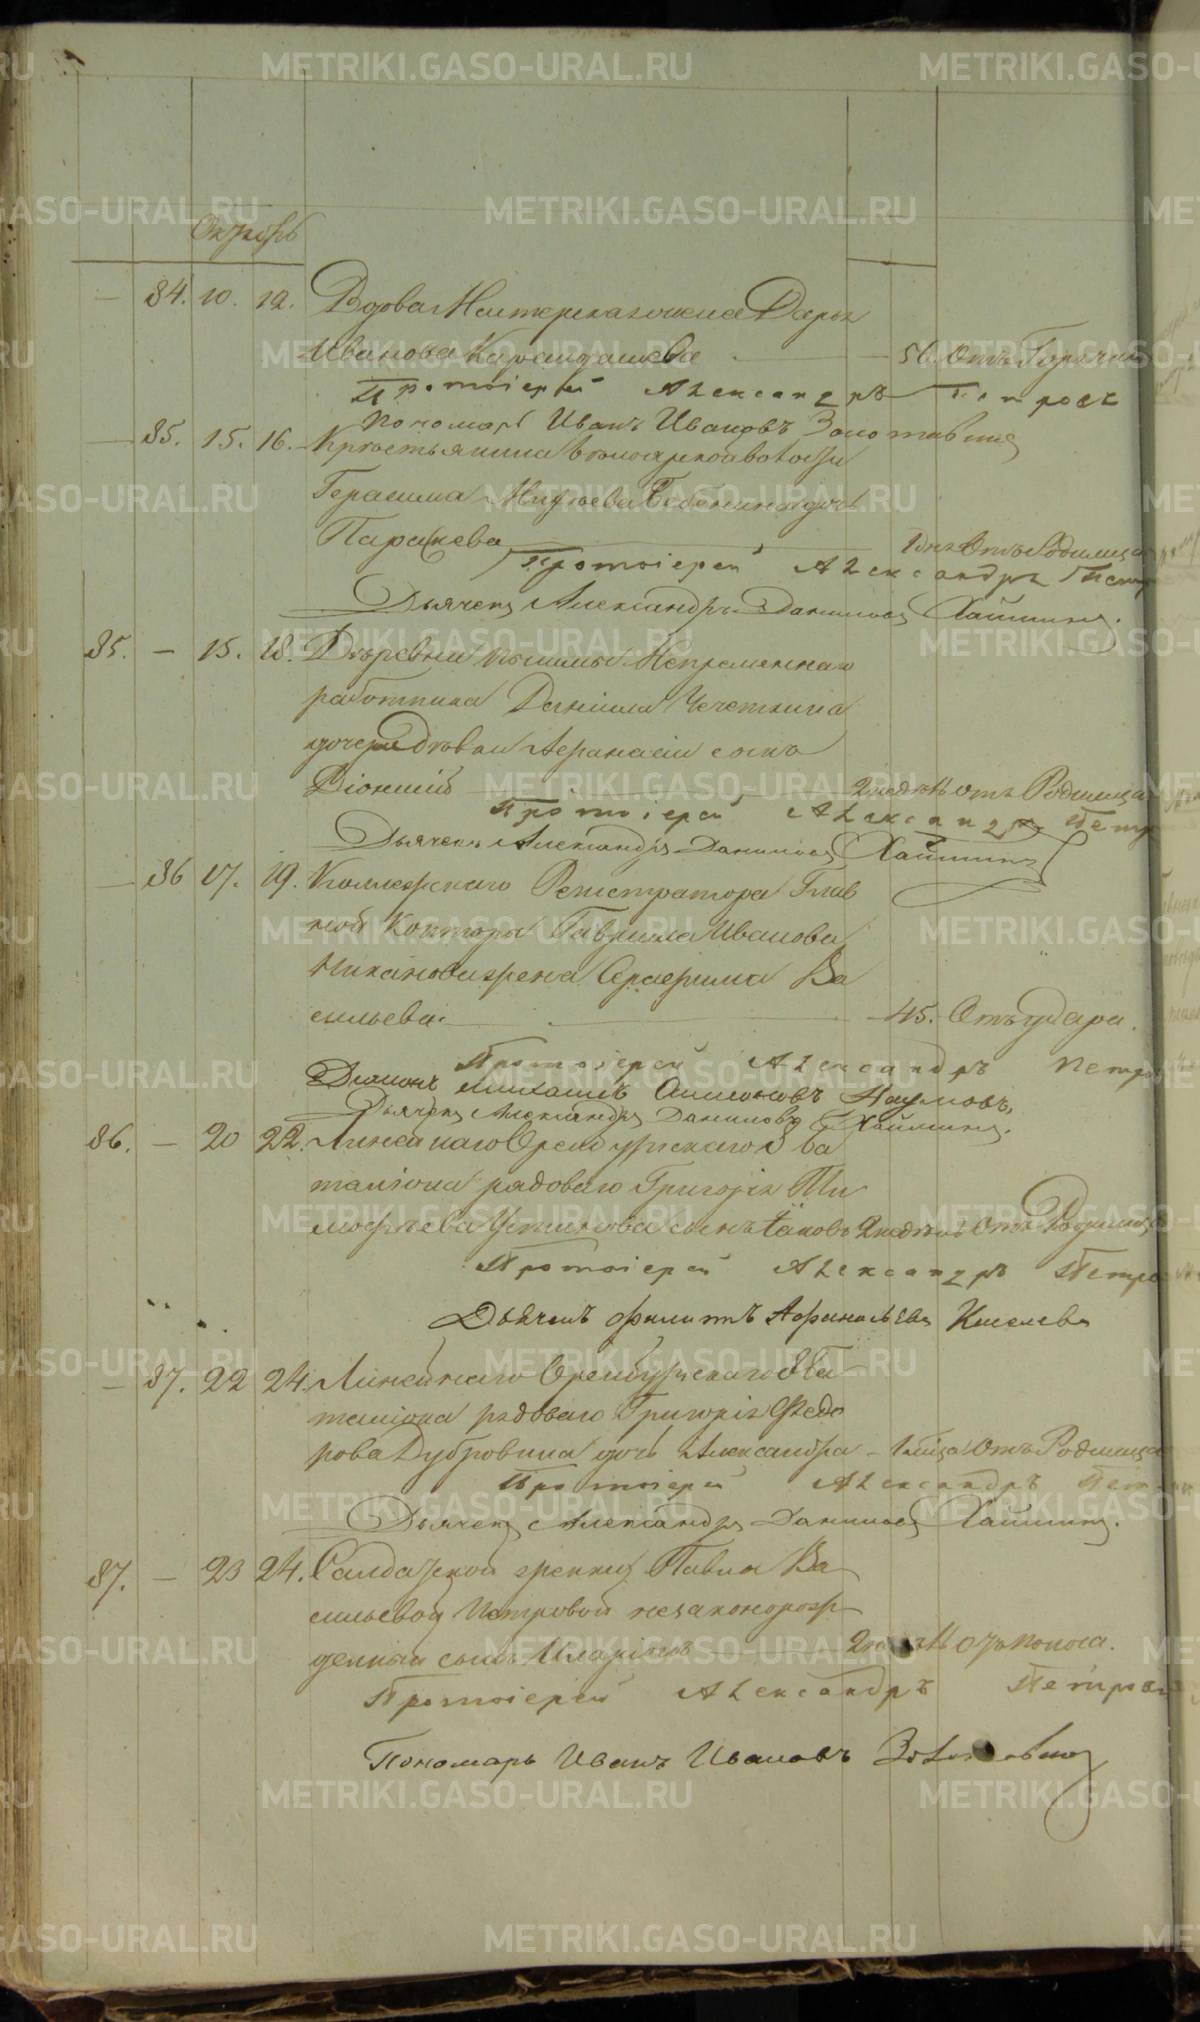 Октябрь
— 84. 10. 12. Вдова Мастерская жена Дарья
Иванова Карандашева — 56. Отъ Горячки
Протоіерей Александръ Петровъ
Пономарь Иванъ Ивановъ Золотавинъ
— 85. 15. 16. Крестьянина волости
Герасима Бабинина дочь
Параскева Отъ Родимца
Протоіерей Александръ Петр
Дьячекъ Александръ Даниловъ Хаймин
85. — 15. 18. Деревни Пышмы Непременнаго
работника Даніила Чечеткина
дочери девки Афанасіи сынъ
Діонисій 2 недель отъ Родимца
Протоіерей Александръ Петр
Дьячекъ Александръ Даниловъ Хайминъ
— 86 17. 19. Коллежскаго Регистратора Глав
ной Конторы Гаврила Иванова
жена Серафима Ва
сильева. — 45. Отъ удара.
Протоіерей Александръ Петро
Діаконъ Симоновъ Наумовъ,
Дьячекъ Александръ Даниловъ Хайминъ.
86. — 20 22. Линейнаго Оренбургскаго 8 ба
таліона рядоваго Григорія Ти
мофеева Устинова сынъ Іаковъ 2 недель Отъ Родимца
Протоіерей Александръ Петро
Дьячекъ Филиппъ Афанасьевъ Киселевъ
— 87. 22 24. Линейнаго Оренбургскаго 8 Ба
таліона рядоваго Григорія Федо
рова Дубровина дочь Александра — 1 м͠ца Отъ Родимца
Протоіерей Александръ Петр
Дьячекъ Александръ Даниловъ Хайминъ.
87. — 23 24. Салдатской женки Павла Ва
сильевой Петровой незаконорож
денный сынъ Иларіонъ — отъ поноса.
Протоіерей Александръ Петровъ
Пономарь Иванъ Ивановъ Золотавинъ
METRIKI.GASO-URAL.RU